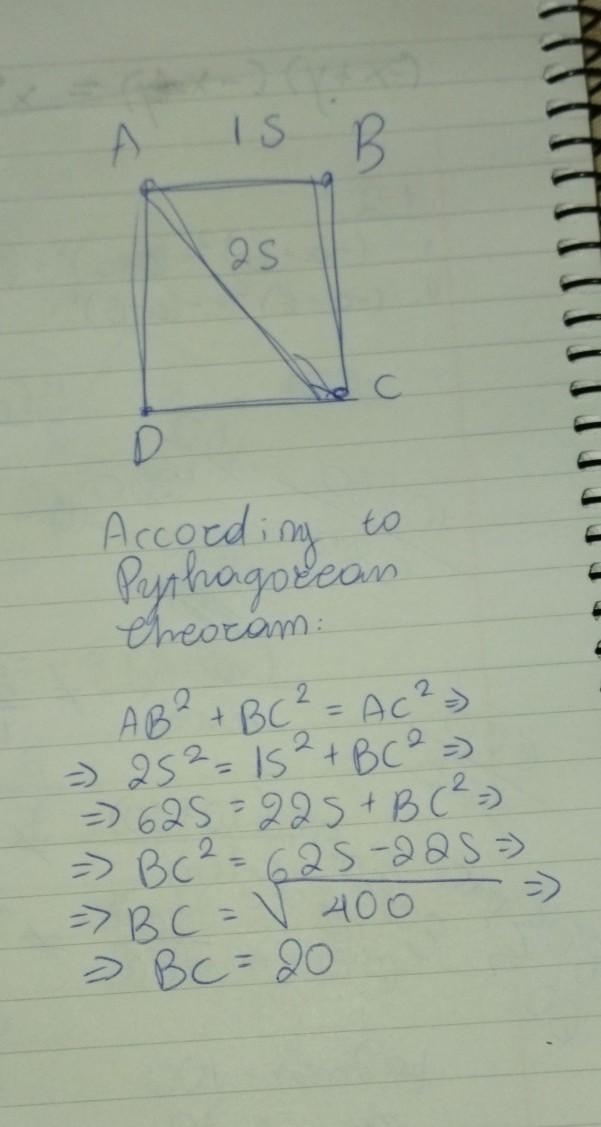 A 15 B
25
C
D
According to
Pyrhagorean
theoram:
AB² + BC² = AC² ⇒
⇒ 25² = 15² + BC² ⇒
⇒ 625 = 225 + BC² ⇒
⇒ BC² = 625 - 225 ⇒
⇒ BC = √400 ⇒
⇒ BC = 20